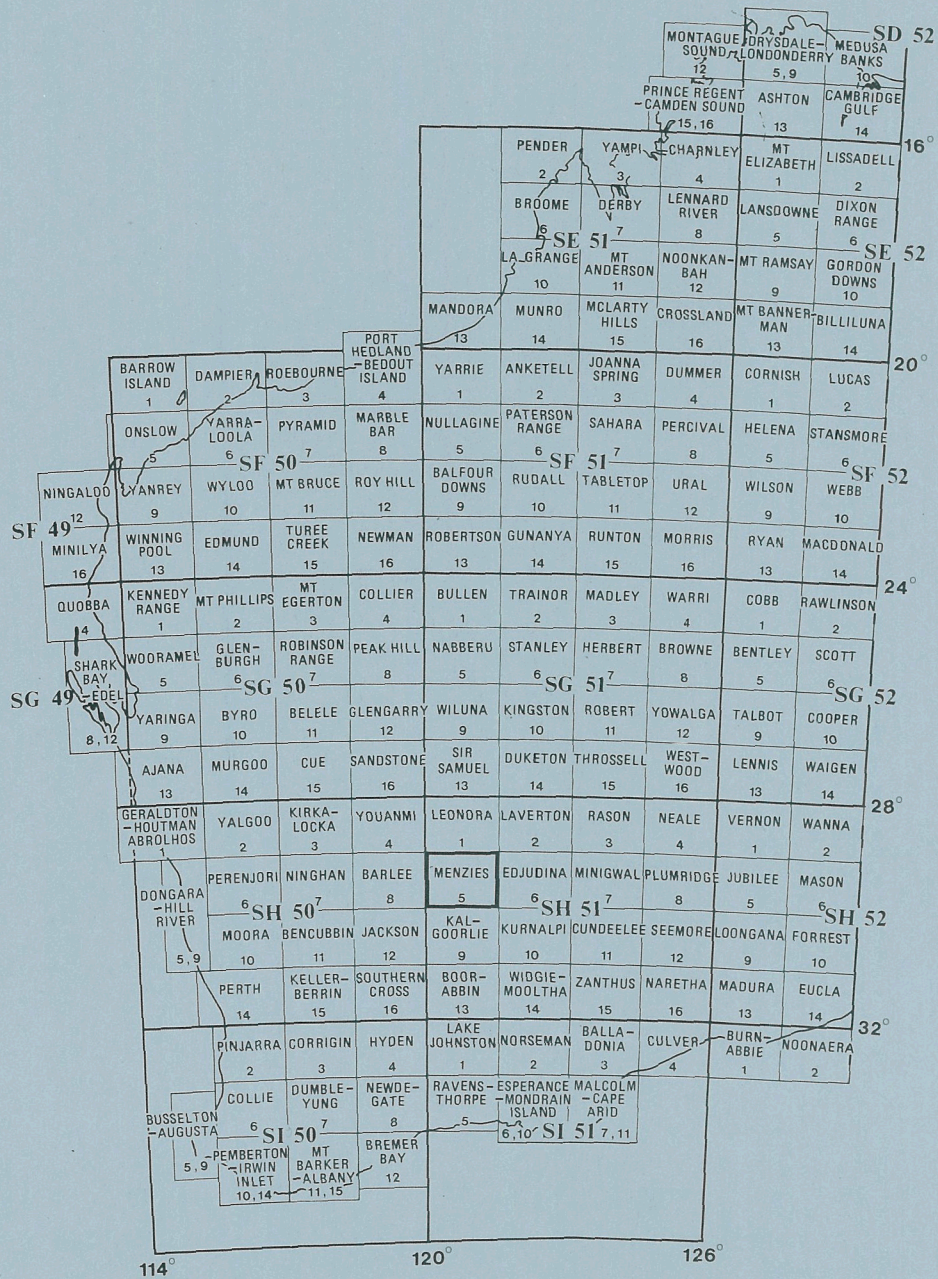 SD 52
MONTAGUE SOUND 12
DRYSDALE-LONDONDERRY 5, 9
MEDUSA BANKS 10
PRINCE REGENT -CAMDEN SOUND 15, 16
ASHTON 13
CAMBRIDGE GULF 14
16°
PENDER 2
YAMPI 3
CHARNLEY 4
MT ELIZABETH 1
LISSADELL 2
BROOME 6
DERBY 7
LENNARD RIVER 8
LANSDOWNE 5
DIXON RANGE 6
SE 51
SE 52
LA GRANGE 10
MT ANDERSON 11
NOONKAN-BAH 12
MT RAMSAY 9
GORDON DOWNS 10
MANDORA 13
MUNRO 14
MCLARTY HILLS 15
CROSSLAND 16
MT BANNER-MAN 13
BILLILUNA 14
20°
BARROW ISLAND 1
DAMPIER 2
ROEBOURNE 3
PORT HEDLAND -BEDOUT ISLAND 4
YARRIE 1
ANKETELL 2
JOANNA SPRING 3
DUMMER 4
CORNISH 1
LUCAS 2
ONSLOW 5
YARRA-LOOLA 6
PYRAMID 7
MARBLE BAR 8
NULLAGINE 5
PATERSON RANGE 6
SAHARA 7
PERCIVAL 8
HELENA 5
STANSMORE 6
SF 50
SF 51
SF 52
NINGALOO 12
YANREY 9
WYLOO 10
MT BRUCE 11
ROY HILL 12
BALFOUR DOWNS 9
RUDALL 10
TABLETOP 11
URAL 12
WILSON 9
WEBB 10
SF 49
MINILYA 16
WINNING POOL 13
EDMUND 14
TUREE CREEK 15
NEWMAN 16
ROBERTSON 13
GUNANYA 14
RUNTON 15
MORRIS 16
RYAN 13
MACDONALD 14
24°
QUOBBA 4
KENNEDY RANGE 1
MT PHILLIPS 2
MT EGERTON 3
COLLIER 4
BULLEN 1
TRAINOR 2
MADLEY 3
WARRI 4
COBB 1
RAWLINSON 2
SHARK BAY, -EDEL 8, 12
WOORAMEL 5
GLEN-BURGH 6
ROBINSON RANGE 7
PEAK HILL 8
NABBERU 5
STANLEY 6
HERBERT 7
BROWNE 8
BENTLEY 5
SCOTT 6
SG 49
SG 50
SG 51
SG 52
YARINGA 9
BYRO 10
BELELE 11
GLENGARRY 12
WILUNA 9
KINGSTON 10
ROBERT 11
YOWALGA 12
TALBOT 9
COOPER 10
AJANA 13
MURGOO 14
CUE 15
SANDSTONE 16
SIR SAMUEL 13
DUKETON 14
THROSSELL 15
WEST-WOOD 16
LENNIS 13
WAIGEN 14
28°
GERALDTON -HOUTMAN ABROLHOS 1
YALGOO 2
KIRKA-LOCKA 3
YOUANMI 4
LEONORA 1
LAVERTON 2
RASON 3
NEALE 4
VERNON 1
WANNA 2
DONGARA -HILL RIVER 5, 9
PERENJORI 6
NINGHAN 7
BARLEE 8
MENZIES 5
EDJUDINA 6
MINIGWAL 7
PLUMRIDGE 8
JUBILEE 5
MASON 6
SH 50
SH 51
SH 52
MOORA 10
BENCUBBIN 11
JACKSON 12
KAL-GOORLIE 9
KURNALPI 10
CUNDEELEE 11
SEEMORE 12
LOONGANA 9
FORREST 10
PERTH 14
KELLER-BERRIN 15
SOUTHERN CROSS 16
BOOR-ABBIN 13
WIDGIE-MOOLTHA 14
ZANTHUS 15
NARETHA 16
MADURA 13
EUCLA 14
32°
PINJARRA 2
CORRIGIN 3
HYDEN 4
LAKE JOHNSTON 1
NORSEMAN 2
BALLA-DONIA 3
CULVER 4
BURN-ABBIE 1
NOONAERA 2
BUSSELTON -AUGUSTA 5, 9
COLLIE 6
DUMBLE-YUNG 7
NEWDE-GATE 8
RAVENS-THORPE 5
ESPERANCE -MONDRAIN ISLAND 6, 10
MALCOLM -CAPE ARID 7, 11
SI 50
SI 51
-PEMBERTON -IRWIN INLET 10, 14
MT BARKER -ALBANY 11, 15
BREMER BAY 12
114°
120°
126°